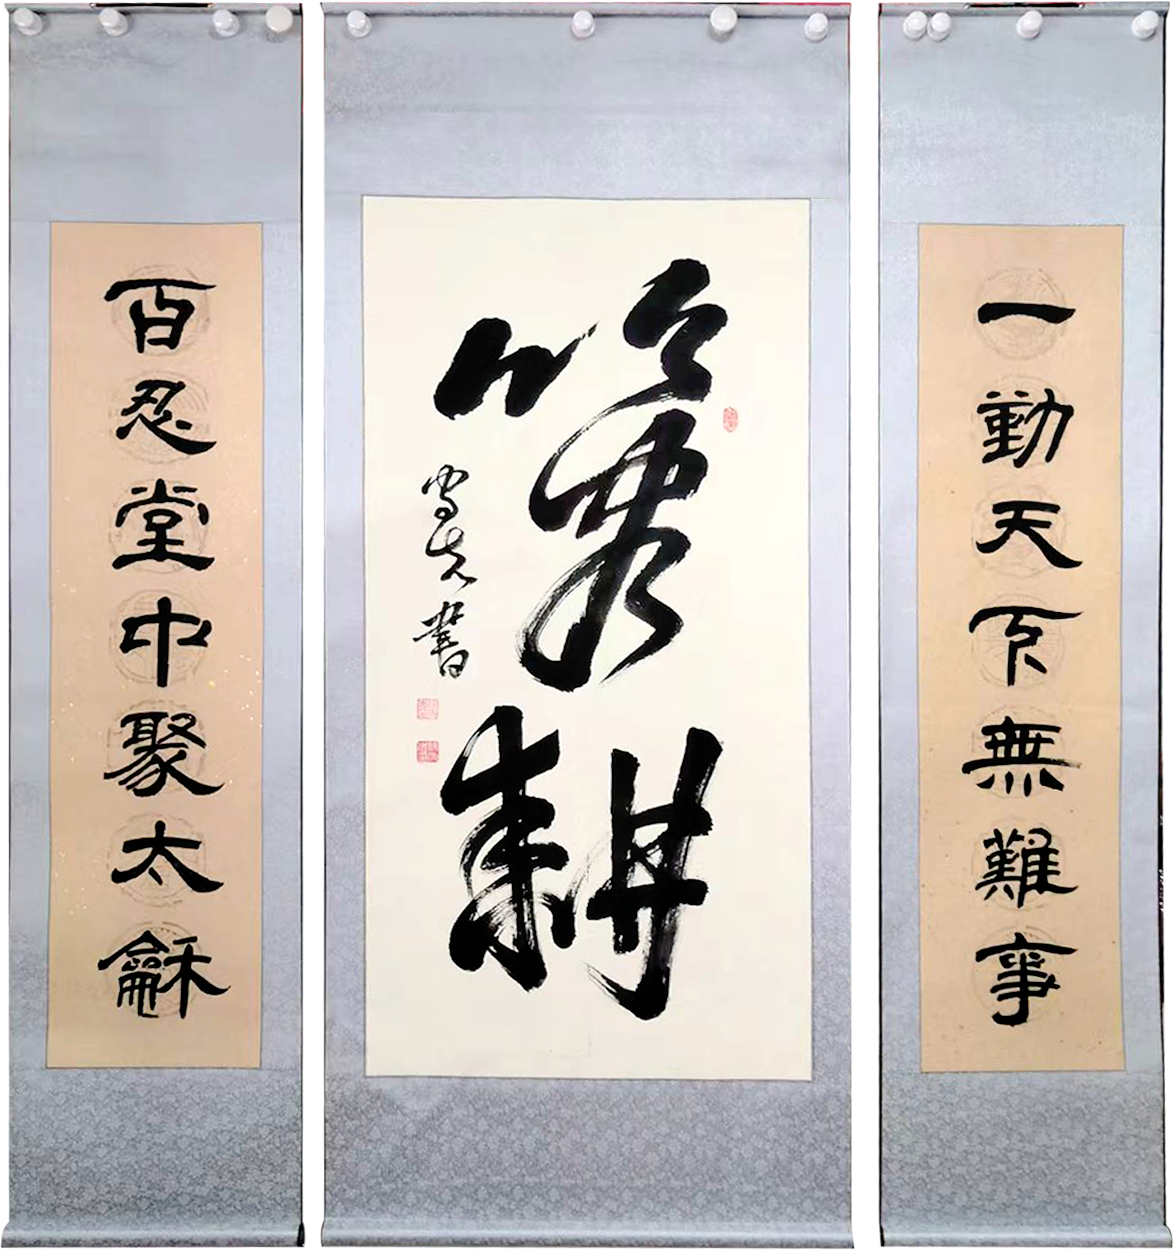 一勤天下無難事
筆耕
書
百忍堂中聚太龢